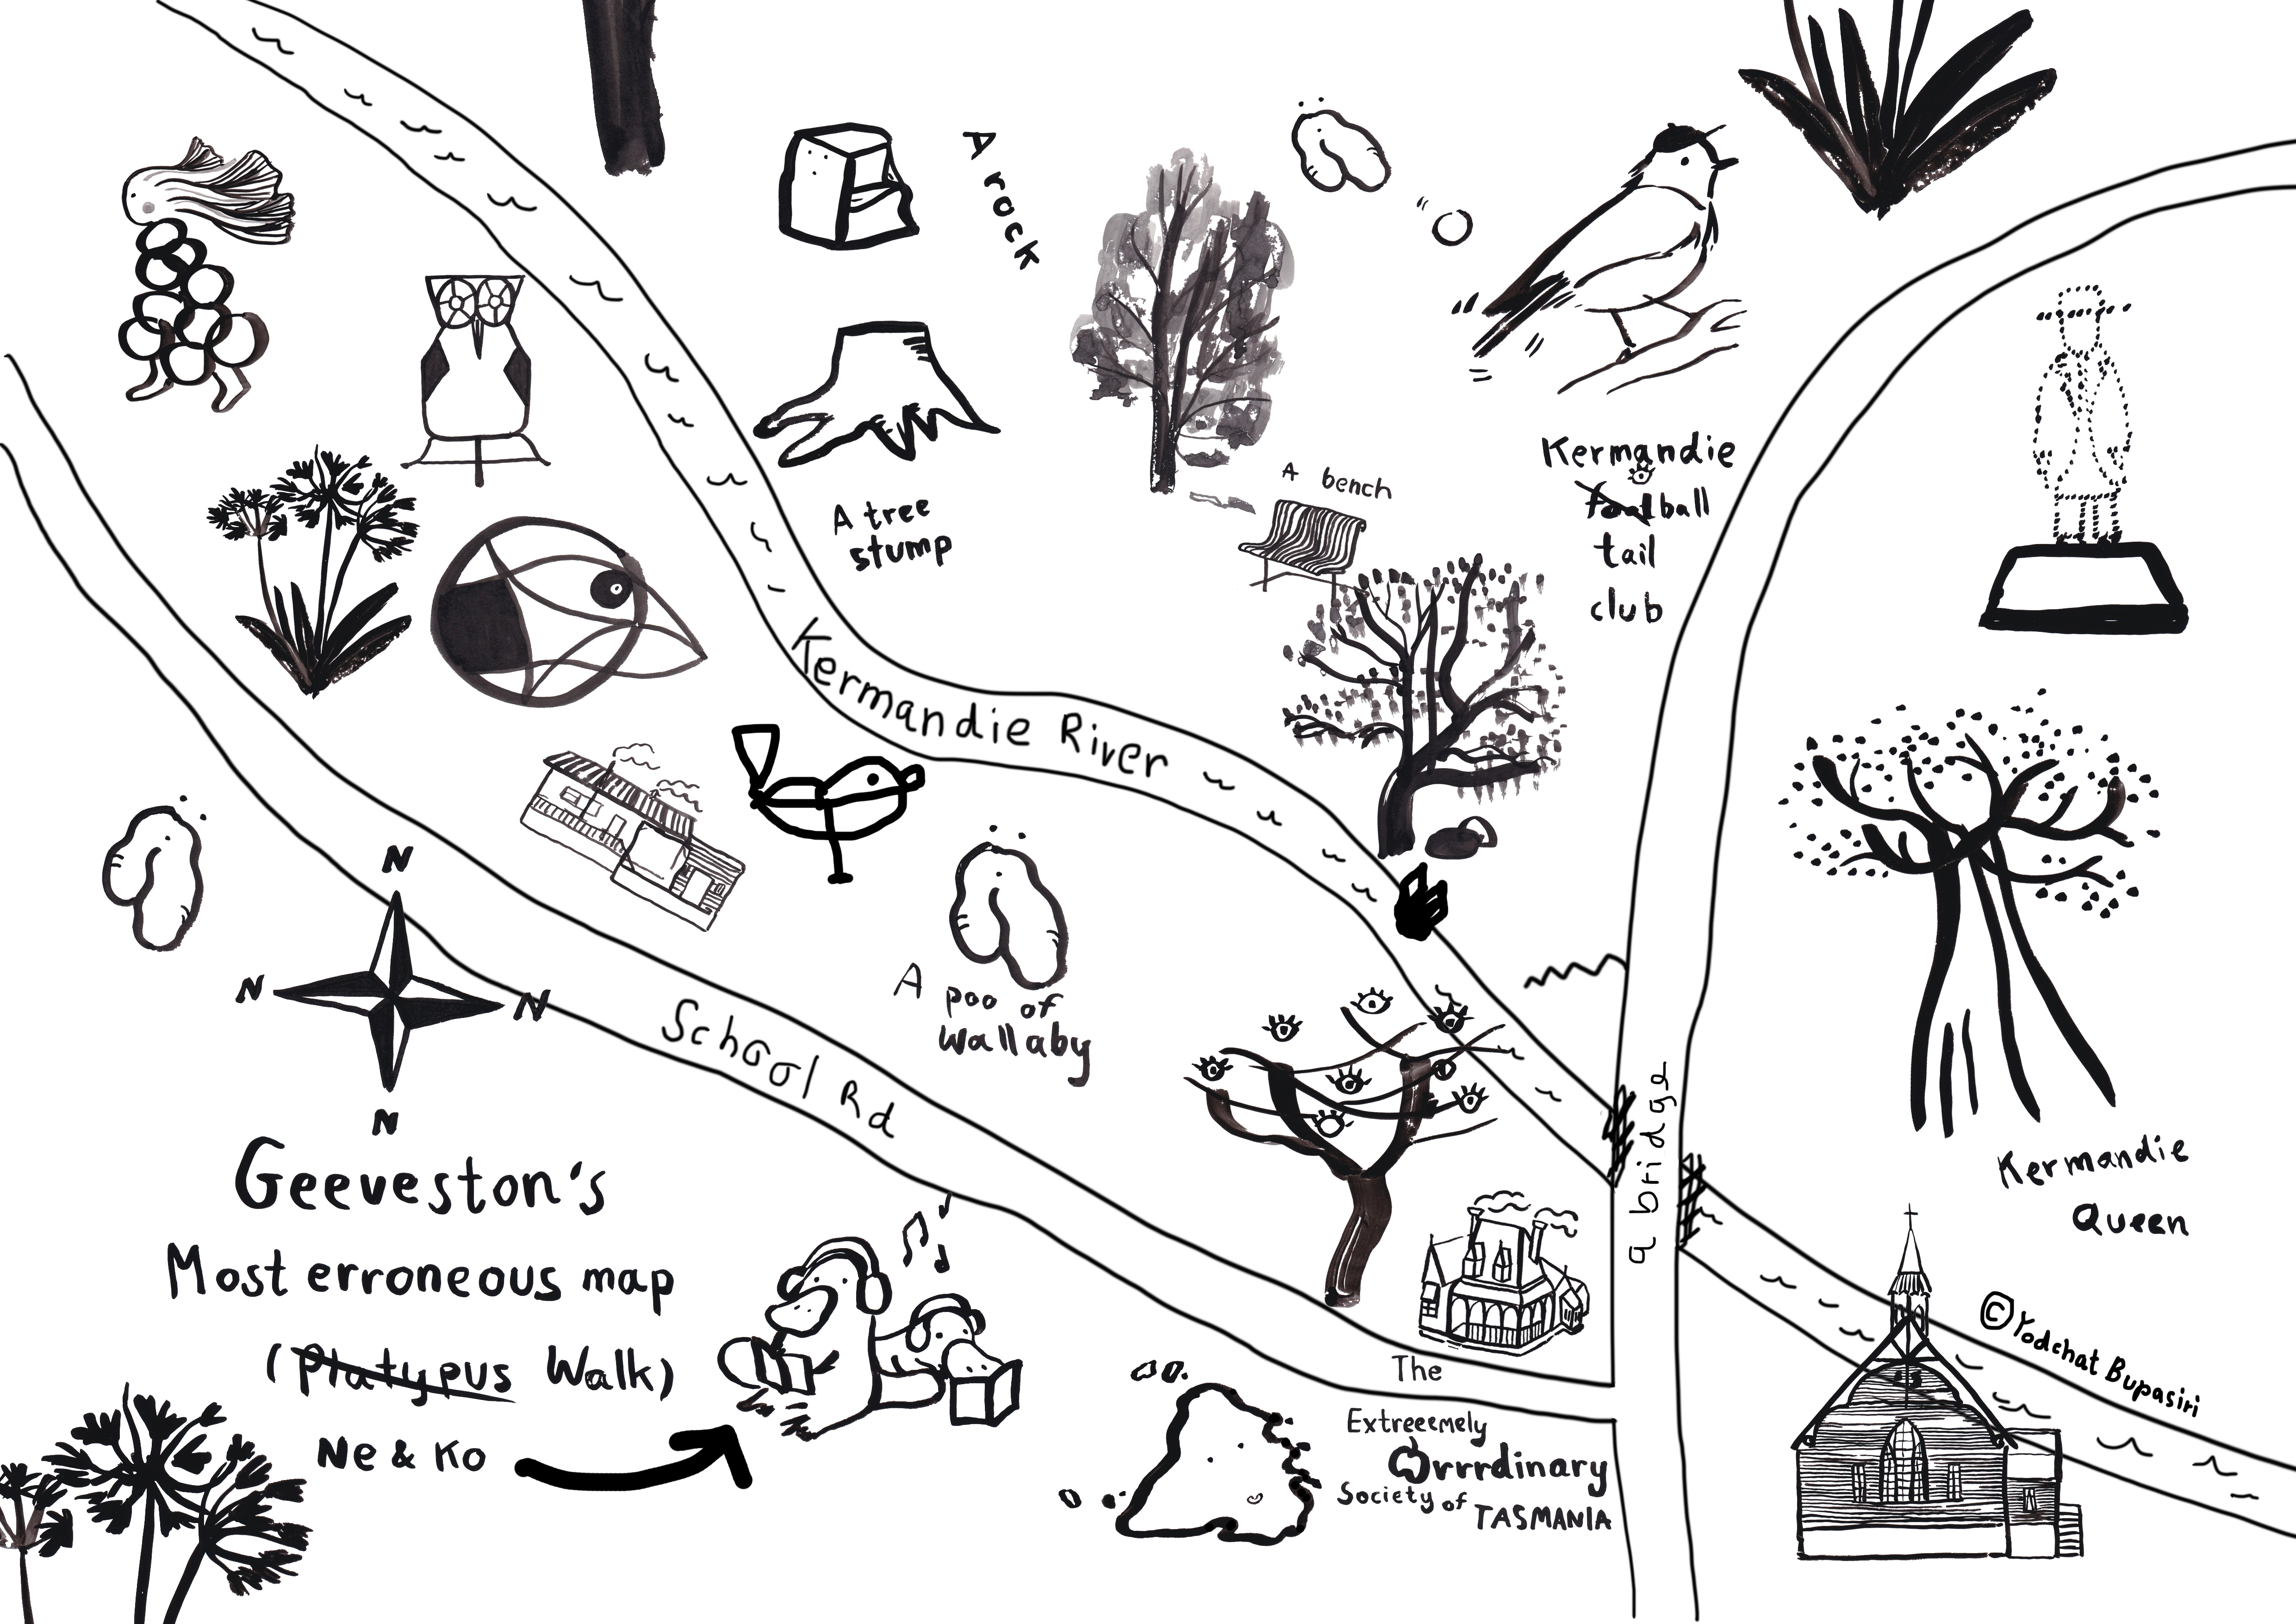 A rock
A bench
Kermandie
football
tail
club
A tree
stump
Kermandie River
A poo of
Wallaby
School Rd
a bridge
N
N
N
N
Geeveston's
Most erroneous map
(Platypus Walk)
Ne & Ko
Kermandie
Queen
© Yodchat Bupasiri
The
Extreeemely
Orrrrdinary
Society of
TASMANIA